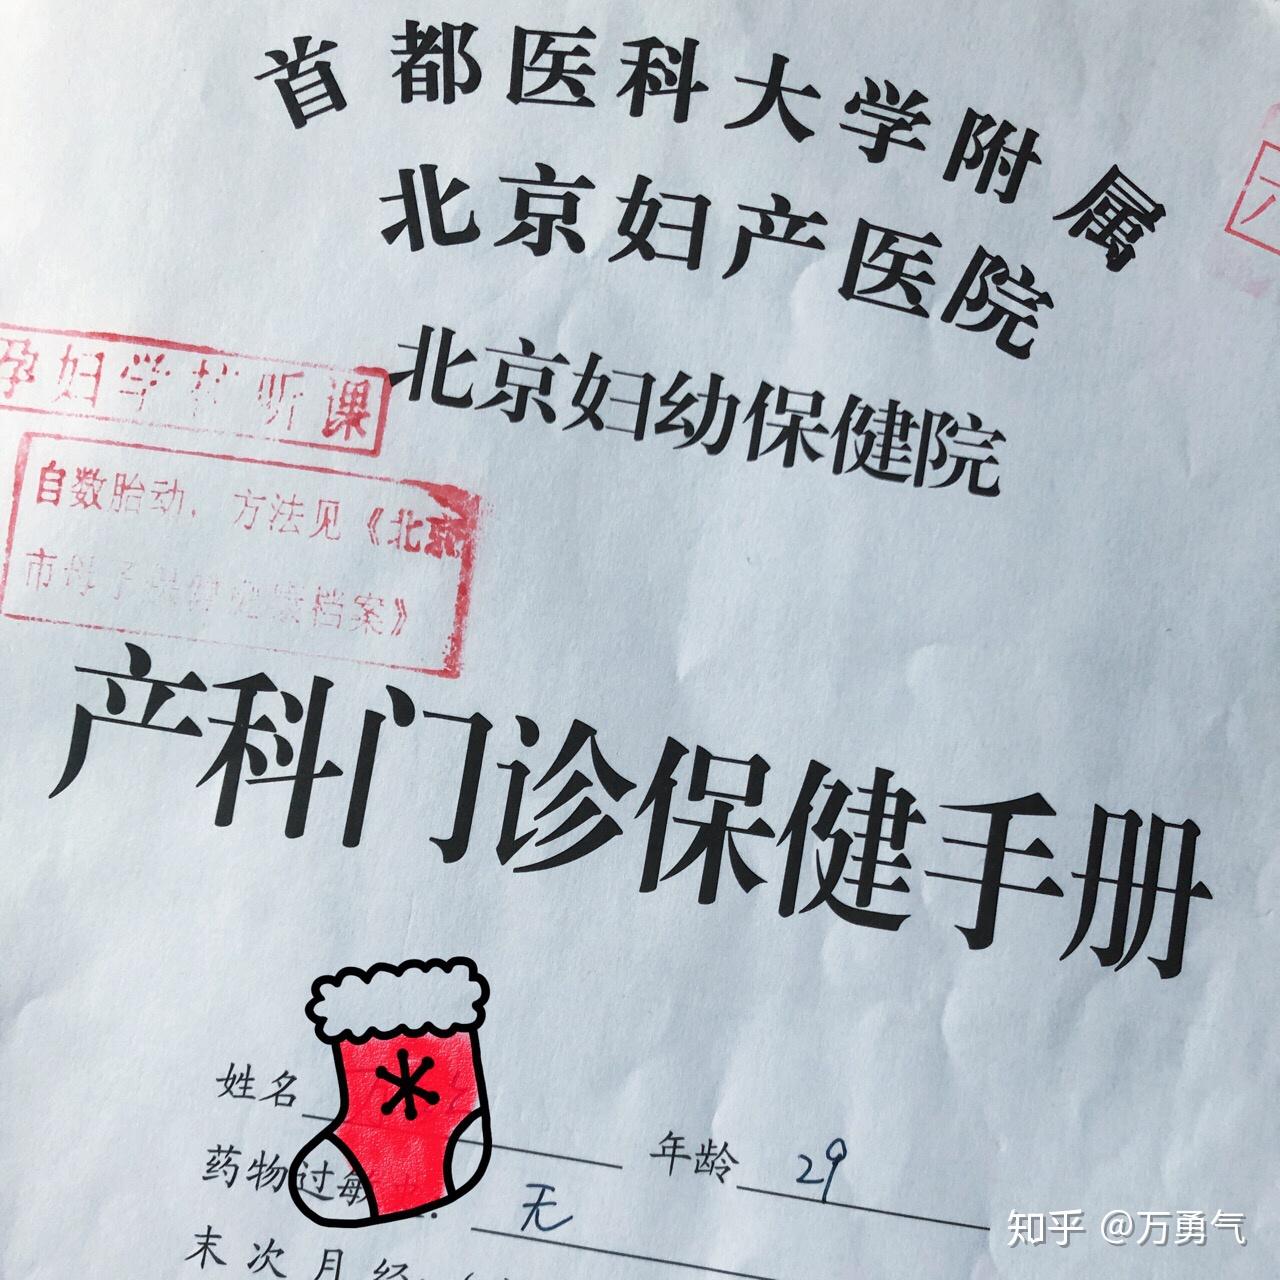 首都医科大学附属
北京妇产医院
北京妇幼保健院
孕妇学校听课
自数胎动，方法见《北京
市母子保健健康档案》
产科门诊保健手册
姓名
年龄 29
药物过敏 无
末次月经
知乎 @万勇气